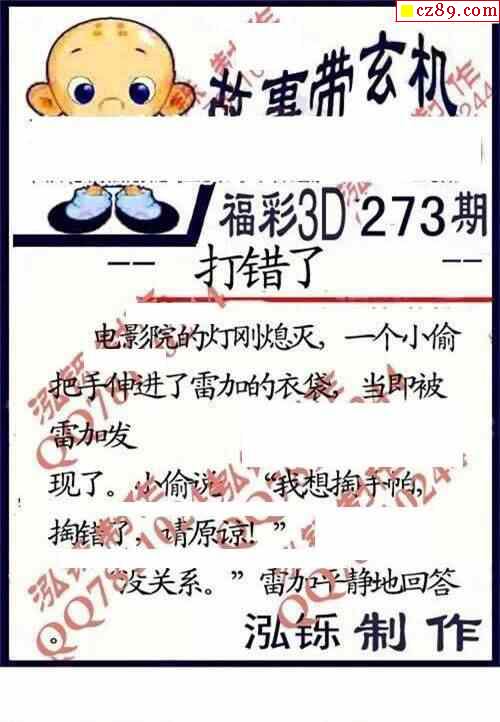 cz89.com
故事带玄机
福彩3D 273期
-- 打错了 --
电影院的灯刚熄灭，一个小偷
把手伸进了雷加的衣袋，当即被
雷加发
现了。小偷说 “我想掏手帕，
掏错了，请原谅！”
“没关系。”雷加平静地回答
。
泓铄制作